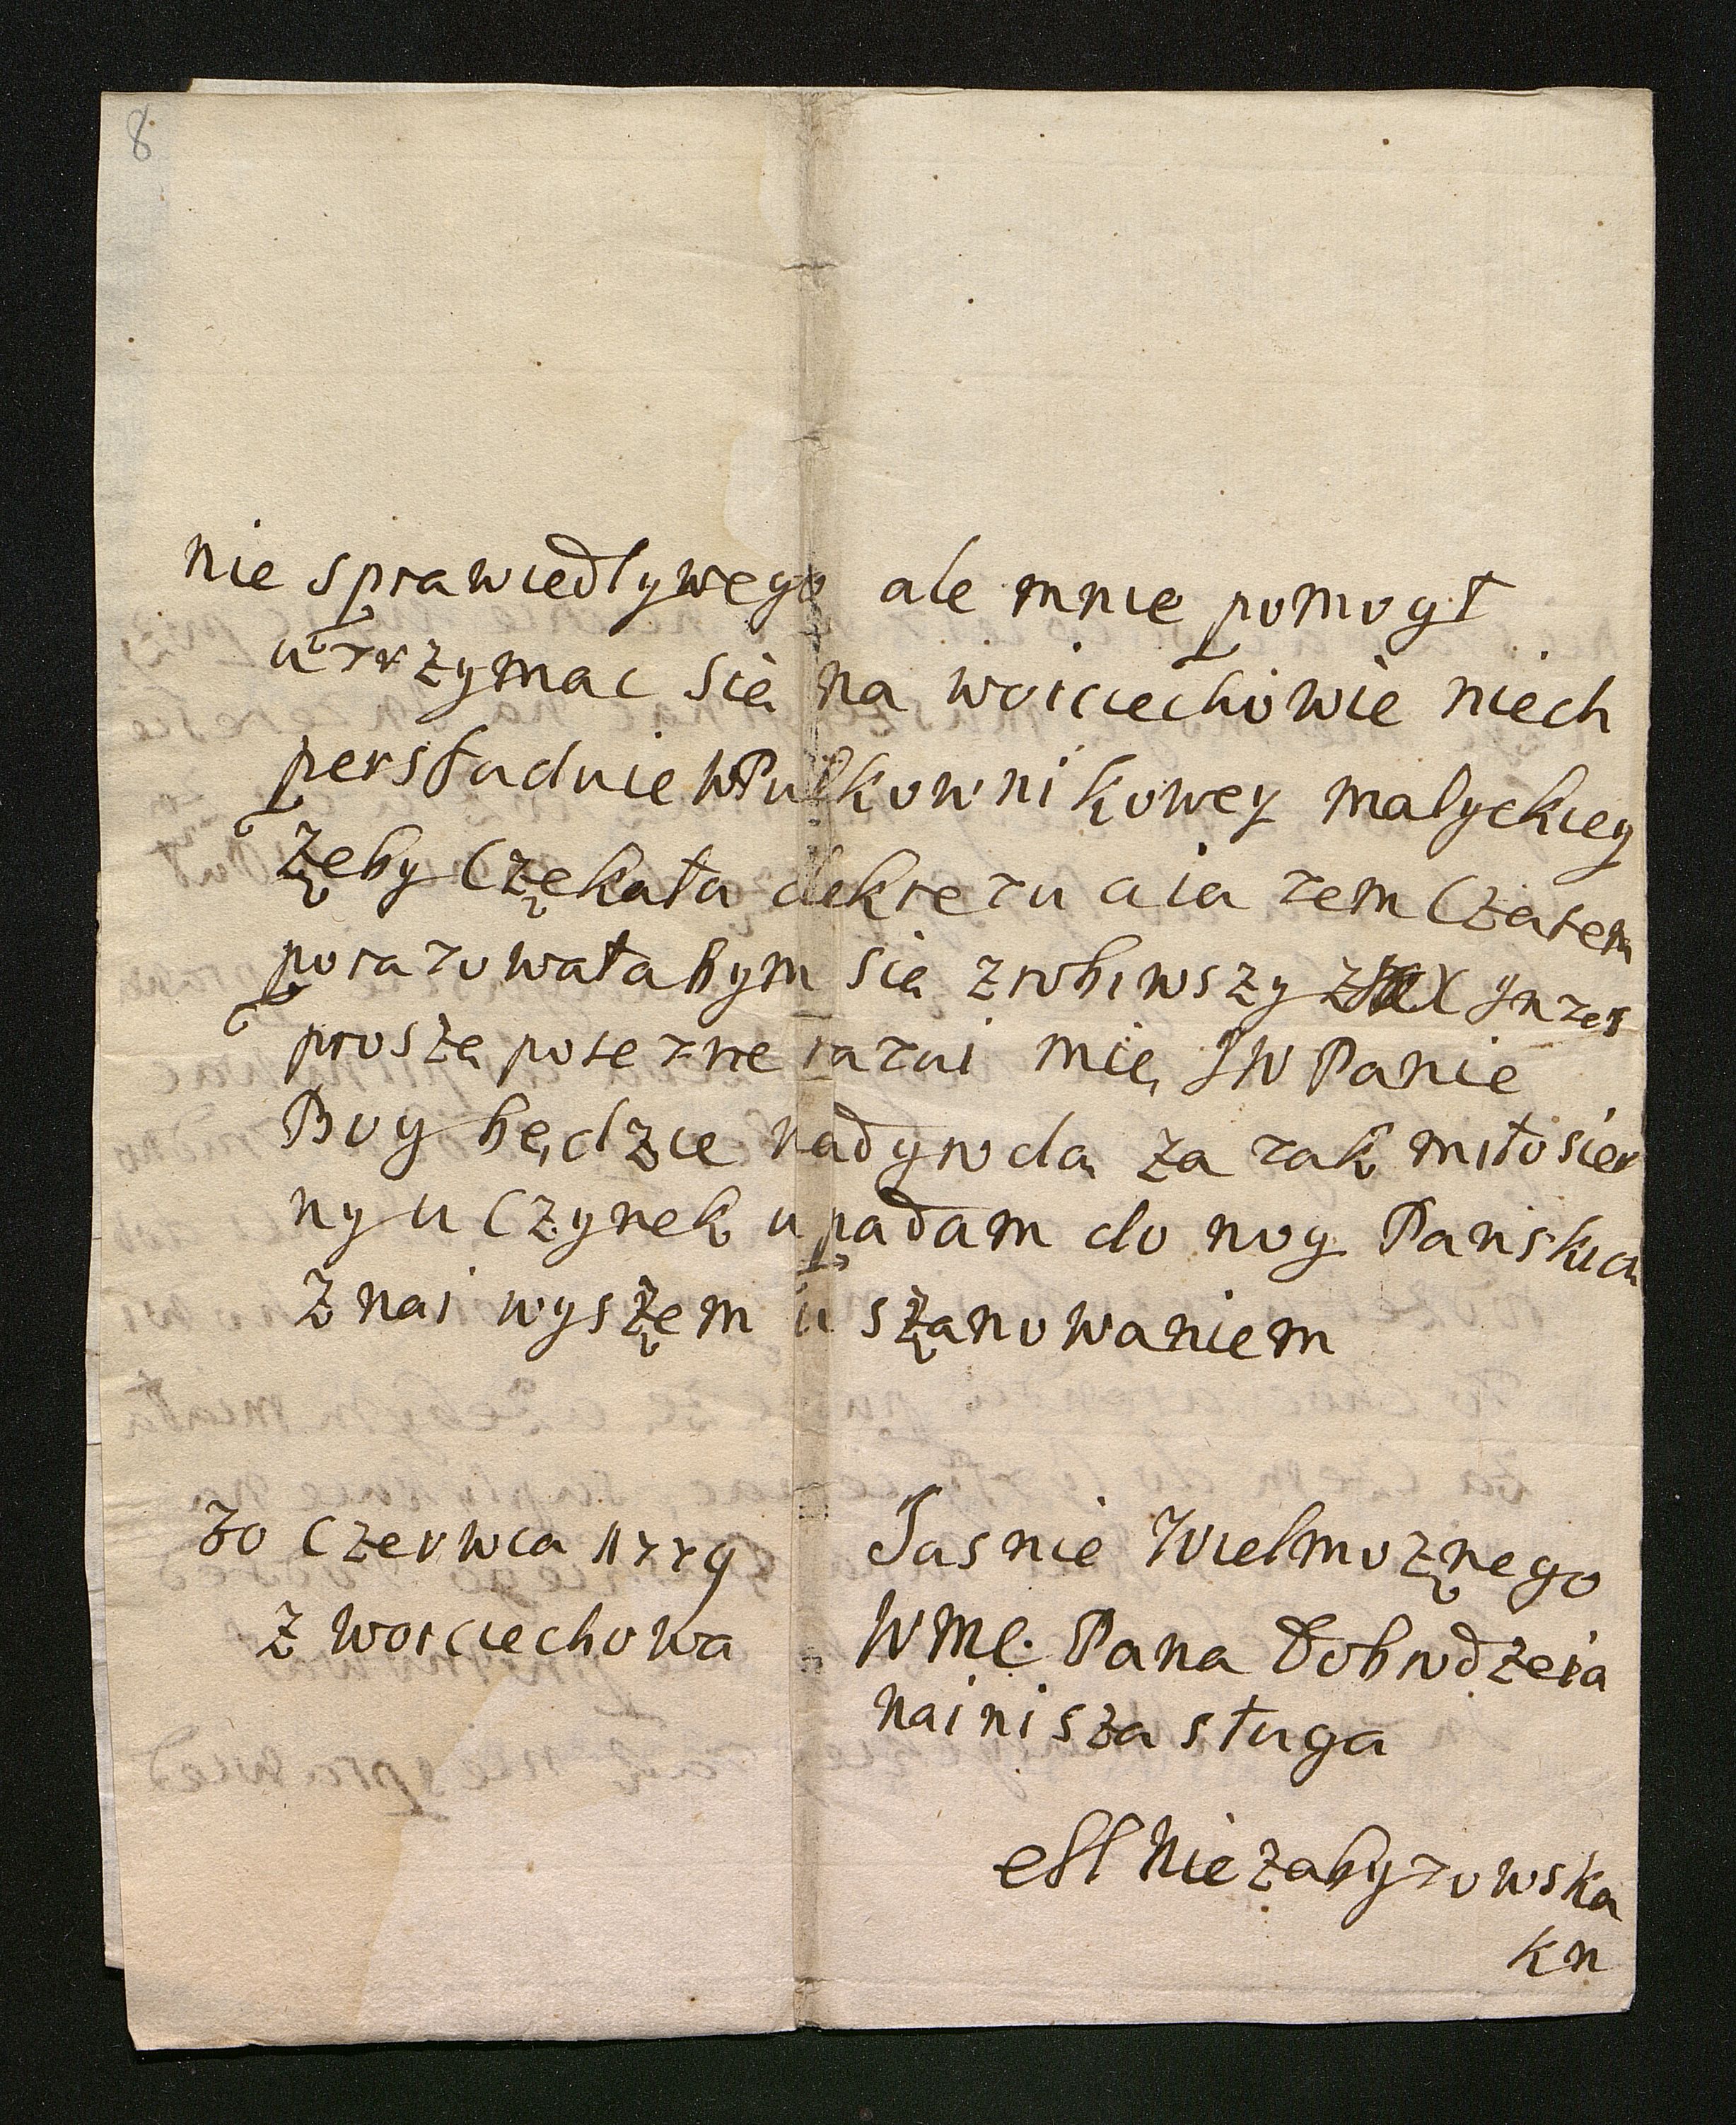 8
nie sprawiedlywego ale mnie pomogł
utrzymac się na woiciechowie niech
persfaduie WPułkownikowey malyckiey
żeby Czekała dekretu a ia tem Czasem
poratowałabym się zrobiwszy z ynteR
proszę potętnie ratui mię JWPanie
Bog będzie nadgrodą za tak miłosier
ny uCzynek upadam do nog Panskich
Z nai wyszem uszanowaniem
30 Czerwca 1779
z woiciechowa
Jasnie Wielmożnego
WMC. Pana Dobrodzeia
nainisza sługa
Niezabytowska
kn